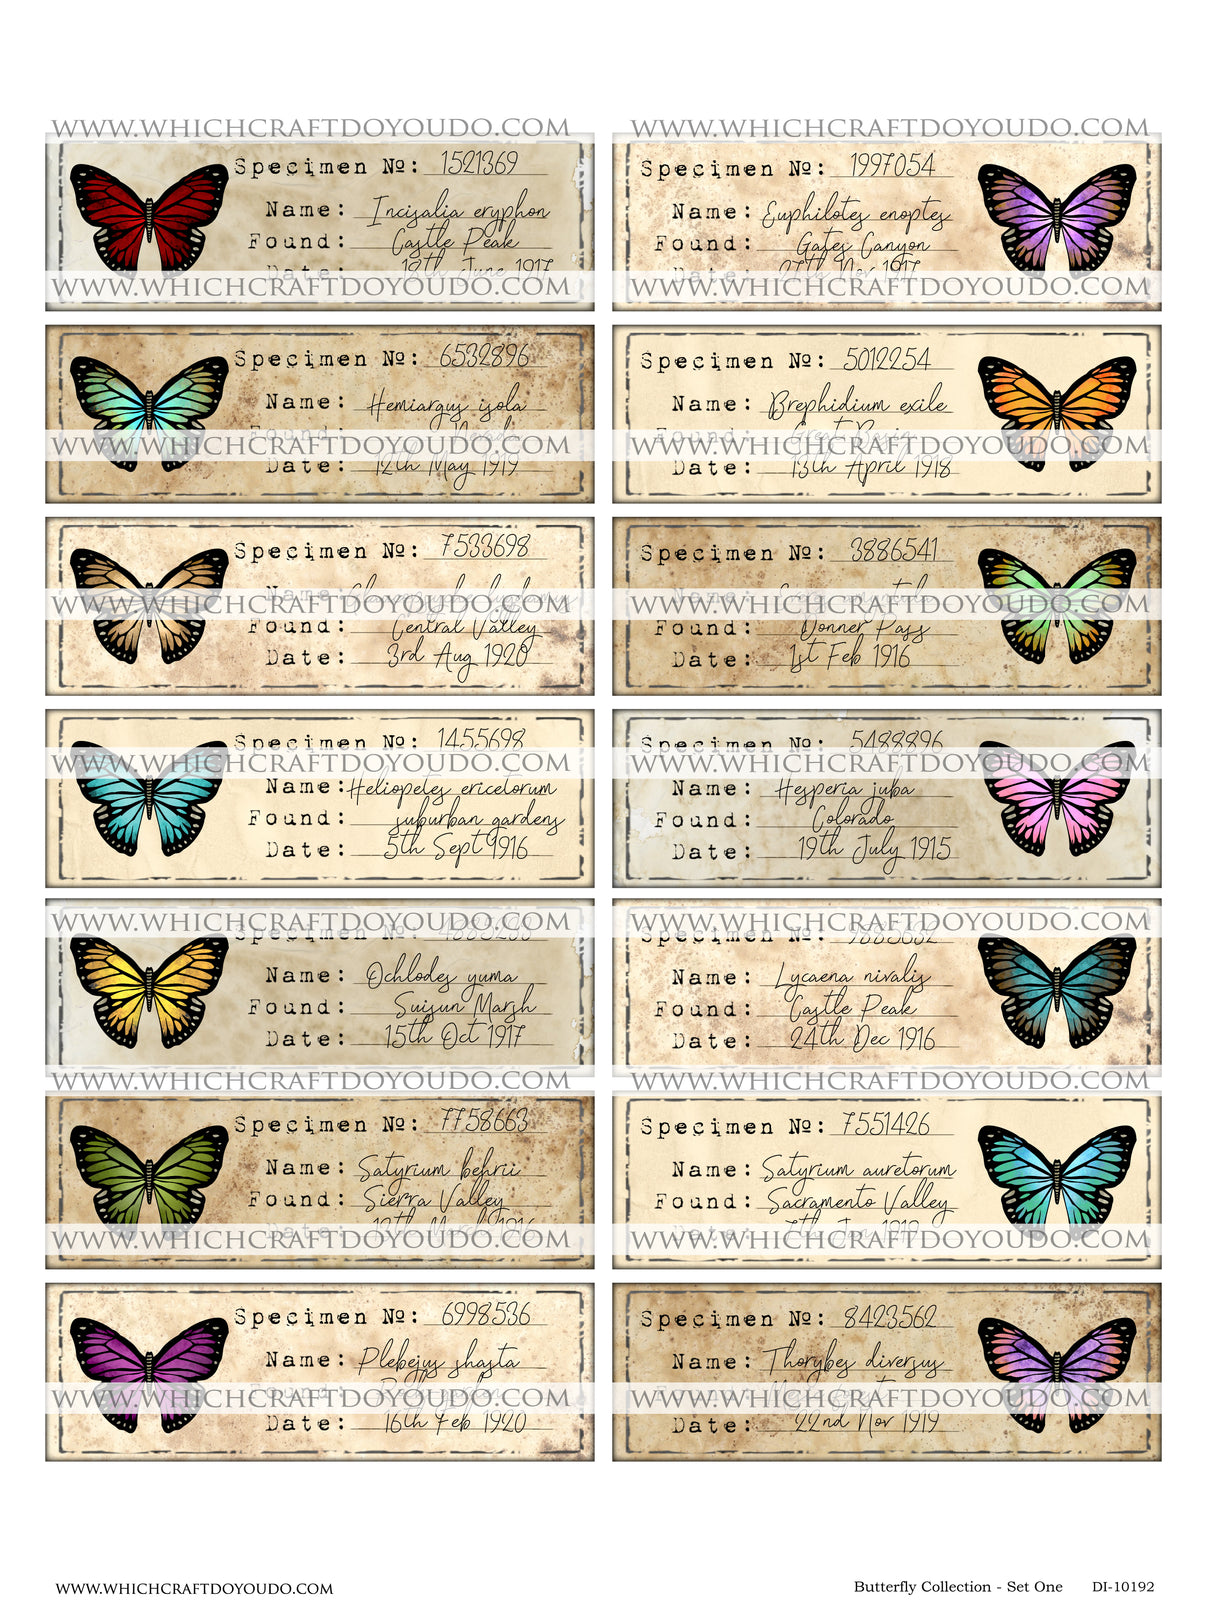 WWW.WHICHCRAFTDOYOUDO.COM
Specimen №: 1521369
Name: Incisalia eryphon
Found: Castle Peak
Date: 18th June 1917
WWW.WHICHCRAFTDOYOUDO.COM
WWW.WHICHCRAFTDOYOUDO.COM
Specimen №: 1997054
Name: Euphilotes enoptes
Found: Gates Canyon
Date: 27th Nov 1917
WWW.WHICHCRAFTDOYOUDO.COM
Specimen №: 6532896
Name: Hemiargus isola
Found:
WWW.WHICHCRAFTDOYOUDO.COM
Date: 12th May 1919
Specimen №: 5012254
Name: Brephidium exile
Found: Great Basin
WWW.WHICHCRAFTDOYOUDO.COM
Date: 13th April 1918
Specimen №: 7533698
Name:
WWW.WHICHCRAFTDOYOUDO.COM
Found: Central Valley
Date: 3rd Aug 1920
Specimen №: 3886541
Name:
WWW.WHICHCRAFTDOYOUDO.COM
Found: Donner Pass
Date: 1st Feb 1916
Specimen №: 1455698
WWW.WHICHCRAFTDOYOUDO.COM
Name: Heliopetes ericetorum
Found: suburban gardens
Date: 5th Sept 1916
Specimen №: 5488896
WWW.WHICHCRAFTDOYOUDO.COM
Name: Hesperia juba
Found: Colorado
Date: 19th July 1915
WWW.WHICHCRAFTDOYOUDO.COM
Specimen №:
Name: Ochlodes yuma
Found: Suisun Marsh
Date: 15th Oct 1917
WWW.WHICHCRAFTDOYOUDO.COM
WWW.WHICHCRAFTDOYOUDO.COM
Specimen №: 9885632
Name: Lycaena nivalis
Found: Castle Peak
Date: 24th Dec 1916
WWW.WHICHCRAFTDOYOUDO.COM
Specimen №: 7758663
Name: Satyrium behrii
Found: Sierra Valley
Date: March 1916
WWW.WHICHCRAFTDOYOUDO.COM
Specimen №: 7551426
Name: Satyrium auretorum
Found: Sacramento Valley
Date: 7th 1919
WWW.WHICHCRAFTDOYOUDO.COM
Specimen №: 6998536
Name: Plebejus shasta
Found:
WWW.WHICHCRAFTDOYOUDO.COM
Date: 16th Feb 1920
Specimen №: 8423562
Name: Thorybes diversus
Found:
WWW.WHICHCRAFTDOYOUDO.COM
Date: 22nd Nov 1919
WWW.WHICHCRAFTDOYOUDO.COM
Butterfly Collection - Set One DI-10192